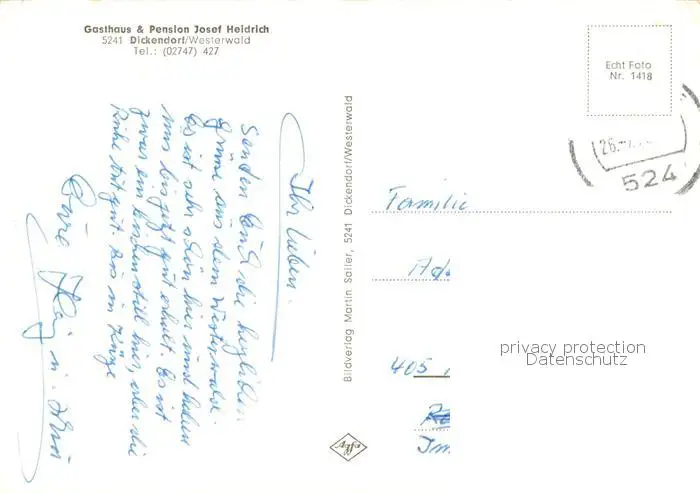 Gasthaus & Pension Josef Heidrich
5241 Dickendorf/Westerwald
Tel.: (02747) 427
Ihr Lieben.
Senden Euch die herzlichen
Grüße aus dem Westerwald.
Es ist sehr schön hier und haben
uns bis jetzt gut erholt. Es ist
zwar ein bischen still hier, aber die
Ruhe tut gut. Bis in Kürze
Eure
Bildverlag Martin Sailer, 5241 Dickendorf/Westerwald
Agfa
Echt Foto
Nr. 1418
26.
524
Familie
Ad
405
privacy protection
Datenschutz
Im